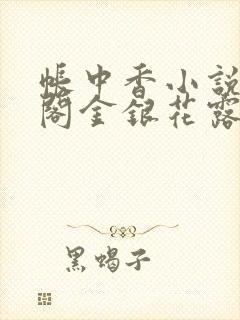 帳中香小說
閣金銀花露
黑蝎子